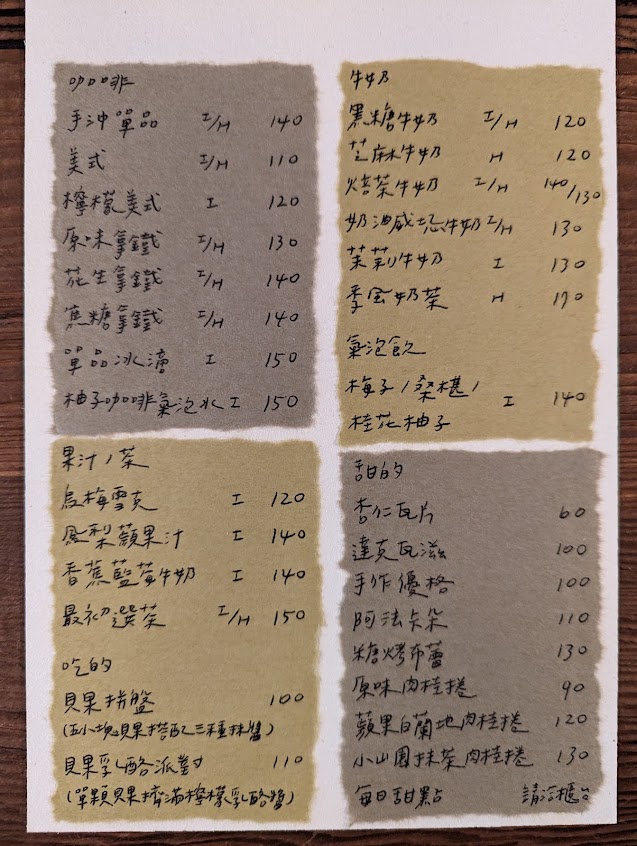 咖啡
手沖單品 I/H 140
美式 I/H 110
檸檬美式 I 120
原味拿鐵 I/H 130
花生拿鐵 I/H 140
焦糖拿鐵 I/H 140
單品冰滴 I 150
柚子咖啡氣泡水 I 150
果汁/茶
烏梅雪克 I 120
鳳梨蘋果汁 I 140
香蕉藍莓牛奶 I 140
最初選茶 I/H 150
吃的
貝果拼盤 100
(五小塊貝果搭配三種抹醬)
貝果乳酪派對 110
(單顆貝果擠滿檸檬乳酪醬)
牛奶
黑糖牛奶 I/H 120
芝麻牛奶 H 120
焙茶牛奶 I/H 140/130
奶油威士忌牛奶 I/H 130
茉莉牛奶 I 130
季風奶茶 H 170
氣泡飲
梅子/桑椹/
桂花柚子 I 140
甜的
杏仁瓦片 60
達克瓦滋 100
手作優格 100
阿法朵 110
糖烤布蕾 130
原味肉桂捲 90
蘋果白蘭地肉桂捲 120
小山園抹茶肉桂捲 130
每日甜點 請洽櫃台